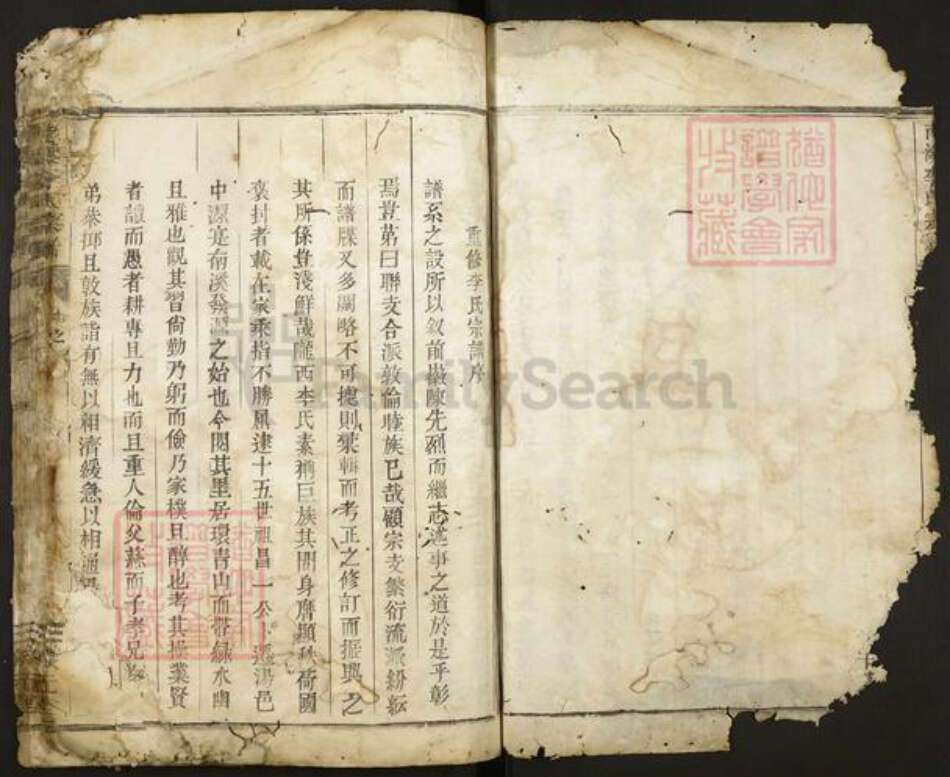 重修李氏宗譜序
譜系之設所以叙前徽陳先烈而繼志述事之道於是乎彰
焉豈第曰聯支合派敦倫睦族已哉顧宗支繁衍流派紛紜
而譜牒又多闕略不可據則纂輯而考正之修訂而振興之
其所係豈淺鮮哉隴西李氏素稱巨族其間身膺顯秩荷國
褒封者載在家乘指不勝屈逮十五世祖昌一公遷湯邑
中源定南溪發之始也今閱其里居環青山而帶綠水幽
且雅也觀其習尚勤乃躬而儉乃家樸且醇也考其操業賢
者讀而愚者耕專且力也而且重人倫父慈而子孝兄
弟恭郷且敦族誼有無以相濟緩急以相通
猶他家
譜學會
收藏
FamilySearch